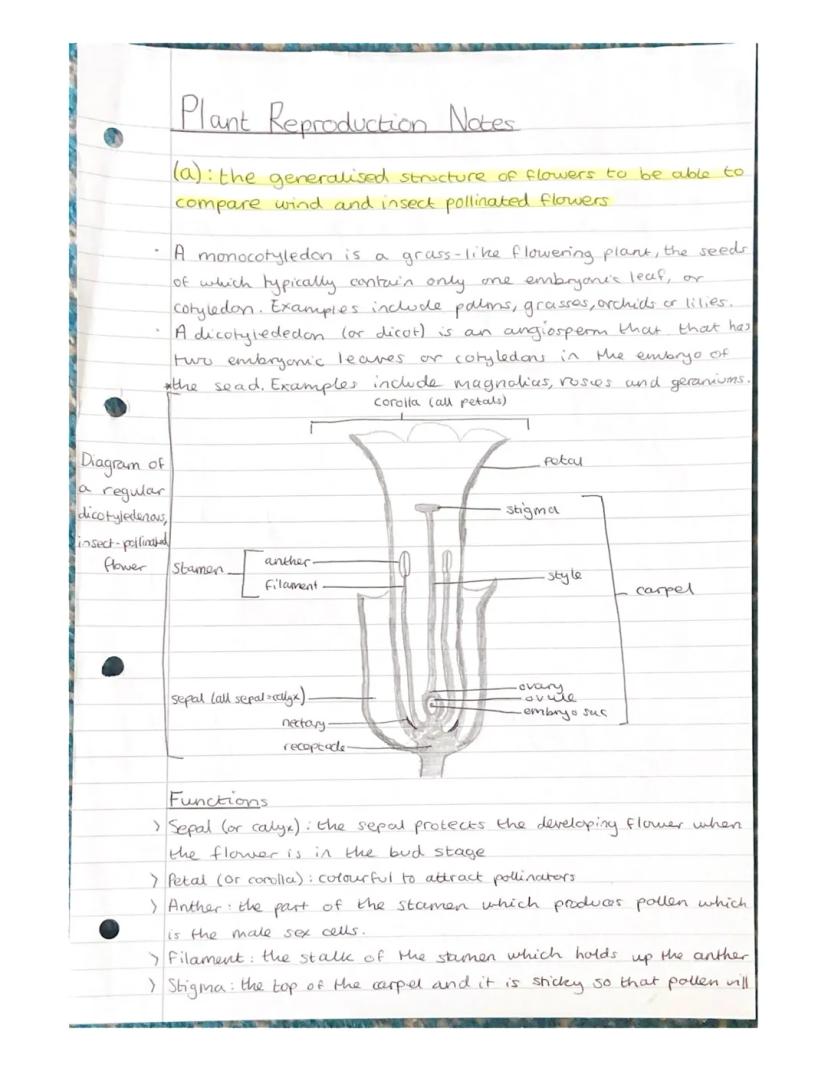 Plant Reproduction Notes
(a): the generalised structure of flowers to be able to
compare wind and insect pollinated flowers
· A monocotyledon is a grass-like flowering plant, the seeds
of which typically contain only one embryonic leaf, or
cotyledon. Examples include palms, grasses, orchids or lilies.
· A dicotyledon (or dicot) is an angiosperm that that has
two embryonic leaves or cotyledons in the embryo of
*the sead. Examples include magnolias, rosies and geraniums.
corolla (all petals)
Diagram of
a regular
dicotyledenous,
insect-pollinated
flower
petal
stigma
stamen
anther
filament
style
carpel
sepal (all sepal=calyx)
nectary
receptacle
ovary
ovule
embryo sac
Functions
> Sepal (or calyx): the sepal protects the developing flower when
the flower is in the bud stage
> Petal (or corolla): colourful to attract pollinators
> Anther: the part of the stamen which produces pollen which
is the male sex cells.
> Filament: the stalk of the stamen which holds up the anther
> Stigma: the top of the carpel and it is sticky so that pollen will